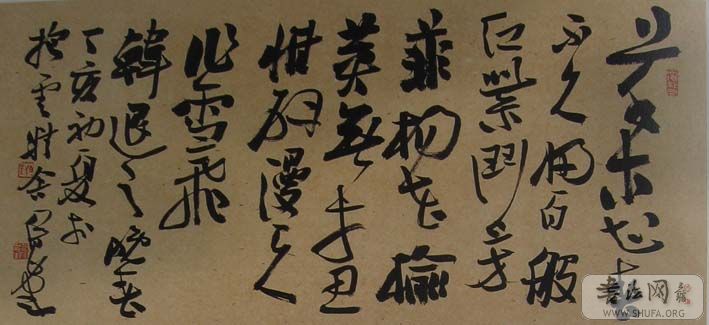 草木知春
不久歸百般
紅紫鬥芳
菲楊花榆
莢無才思
惟解漫天
作雪飛
韓退之晚春
丁亥初夏於
書法网
WWW.SHUFA.ORG